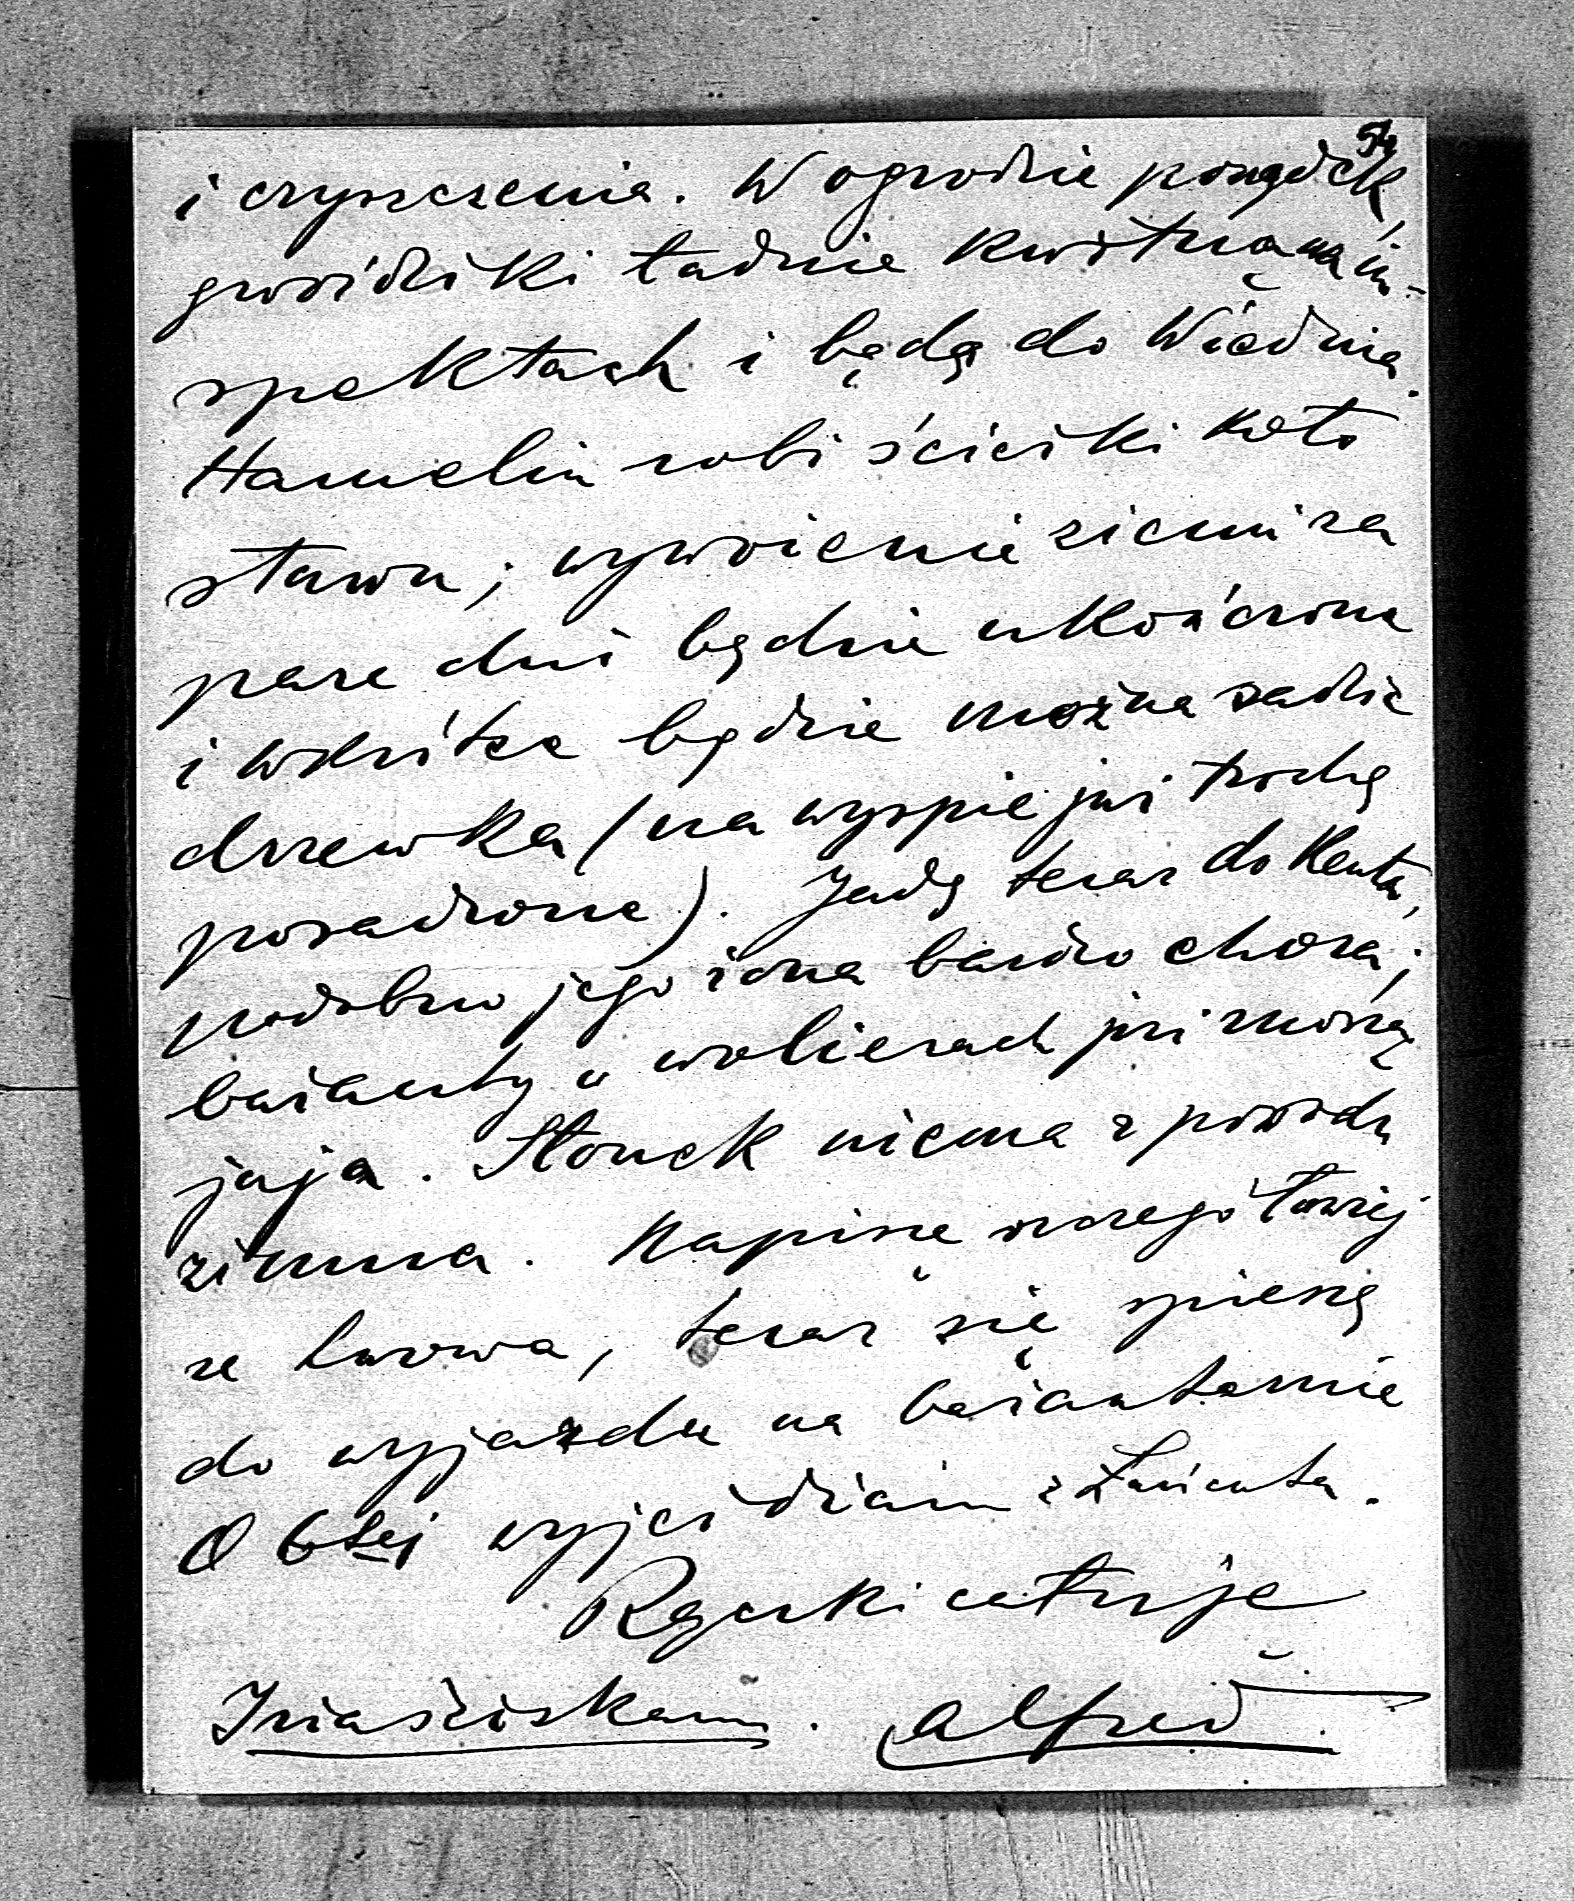 54
i czyszczenia. W ogrodzie porządek,
gwoździki ładnie kwitną na in-
spektach i będą do Wiednia.
Hamelin robi ścieżki koło
stawu; wywożenie ziemi za
parę dni będzie ukończone
i wkrótce będzie można sadzić
drzewka (na wyspie już trochę
posadzone). Jadę teraz do Kenta,
podobno jego żona bardzo chora;
bażanty w wolierach już niosą
jaja. Słonek niema z powodu
zimna. Napiszę szczegółowiej
ze Lwowa, teraz się spieszę
do wyjazdu na bażantarnie
O 6tej wyjeżdżam z Łańcuta.
Rączki całuję
Isia ściskam. Alfred